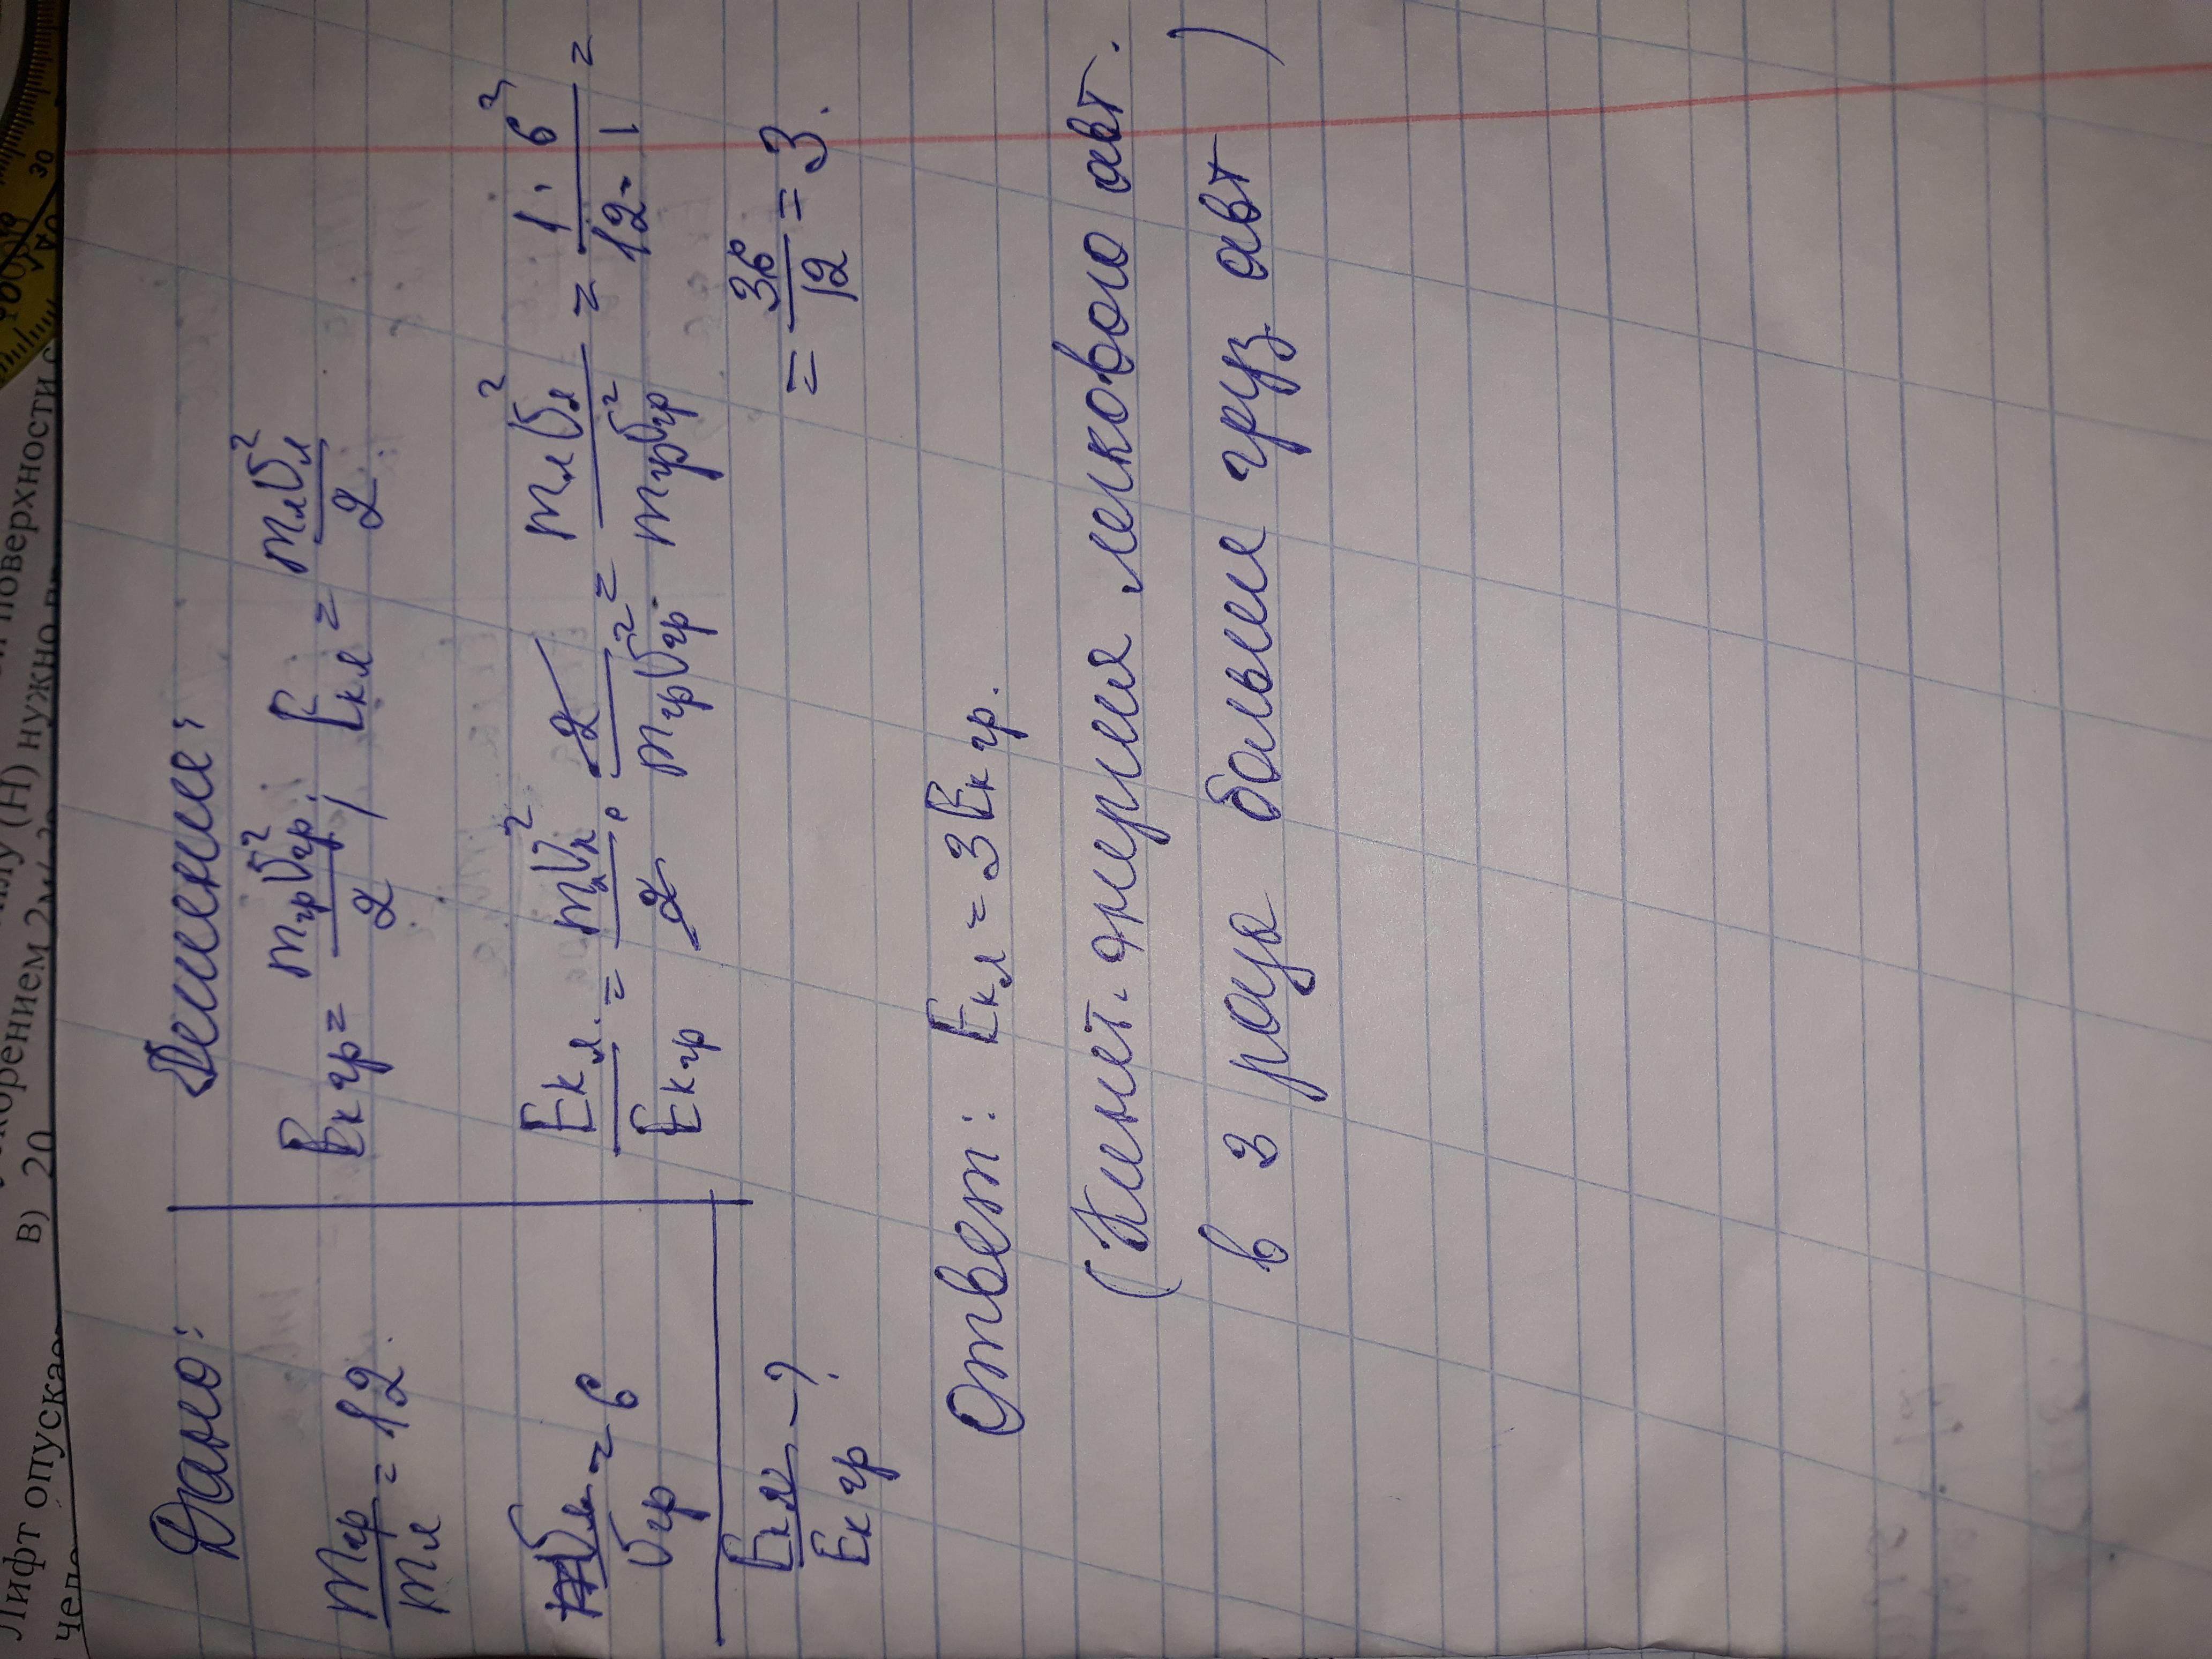 Лифт опускае
корением 2м/
нужно
поверхности с
В) 20
30
Дано:
mгр/mл = 12
υл/υгр = 6
Eкл/Eкгр - ?
Решение:
Eкгр = mгрυгр²/2; Eкл = mлυл²/2
Eкл/Eкгр = mлυл²/2 · 2/mгрυгр² = mлυл²/mгрυгр² = 1·6²/12·1 =
= 36/12 = 3.
Ответ: Eкл = 3Eкгр.
(Кинет. энергия легкового авт.
в 3 раза больше груз авт )